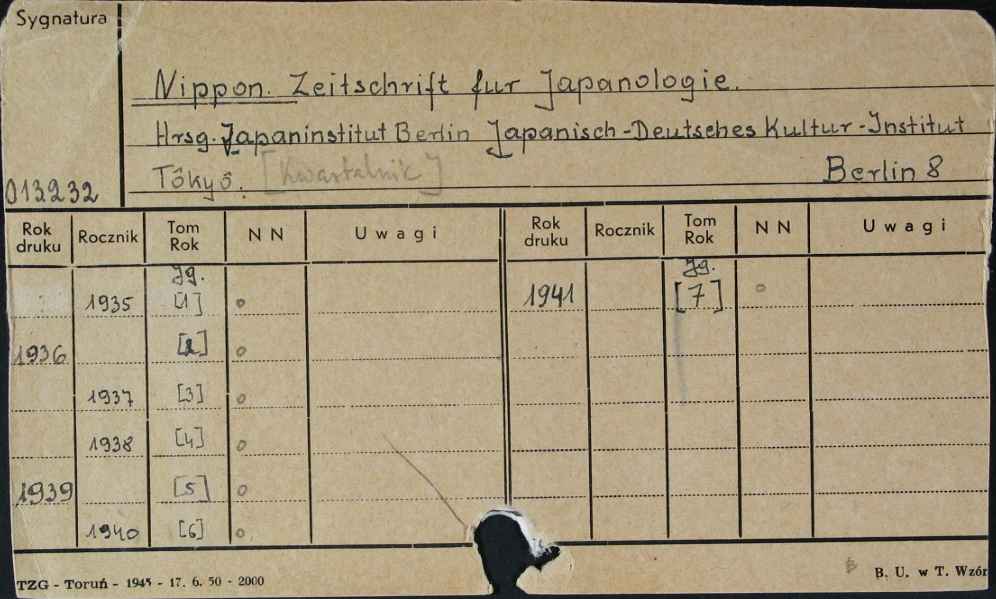 Sygnatura
Nippon. Zeitschrift fur Japanologie.
Hrsg. Japaninstitut Berlin Japanisch-Deutsches Kultur-Institut
Tôkyô. [Kwartalnik] Berlin 8
013232
Rok druku Rocznik Tom Rok NN Uwagi Rok druku Rocznik Tom Rok NN Uwagi
Jg. Jg.
1935 [1] o 1941 [7] o
1936 [2] o
1937 [3] o
1938 [4] o
1939 [5] o
1940 [6] o
TZG - Toruń - 1945 - 17. 6. 50 - 2000 B. U. w T. Wzór